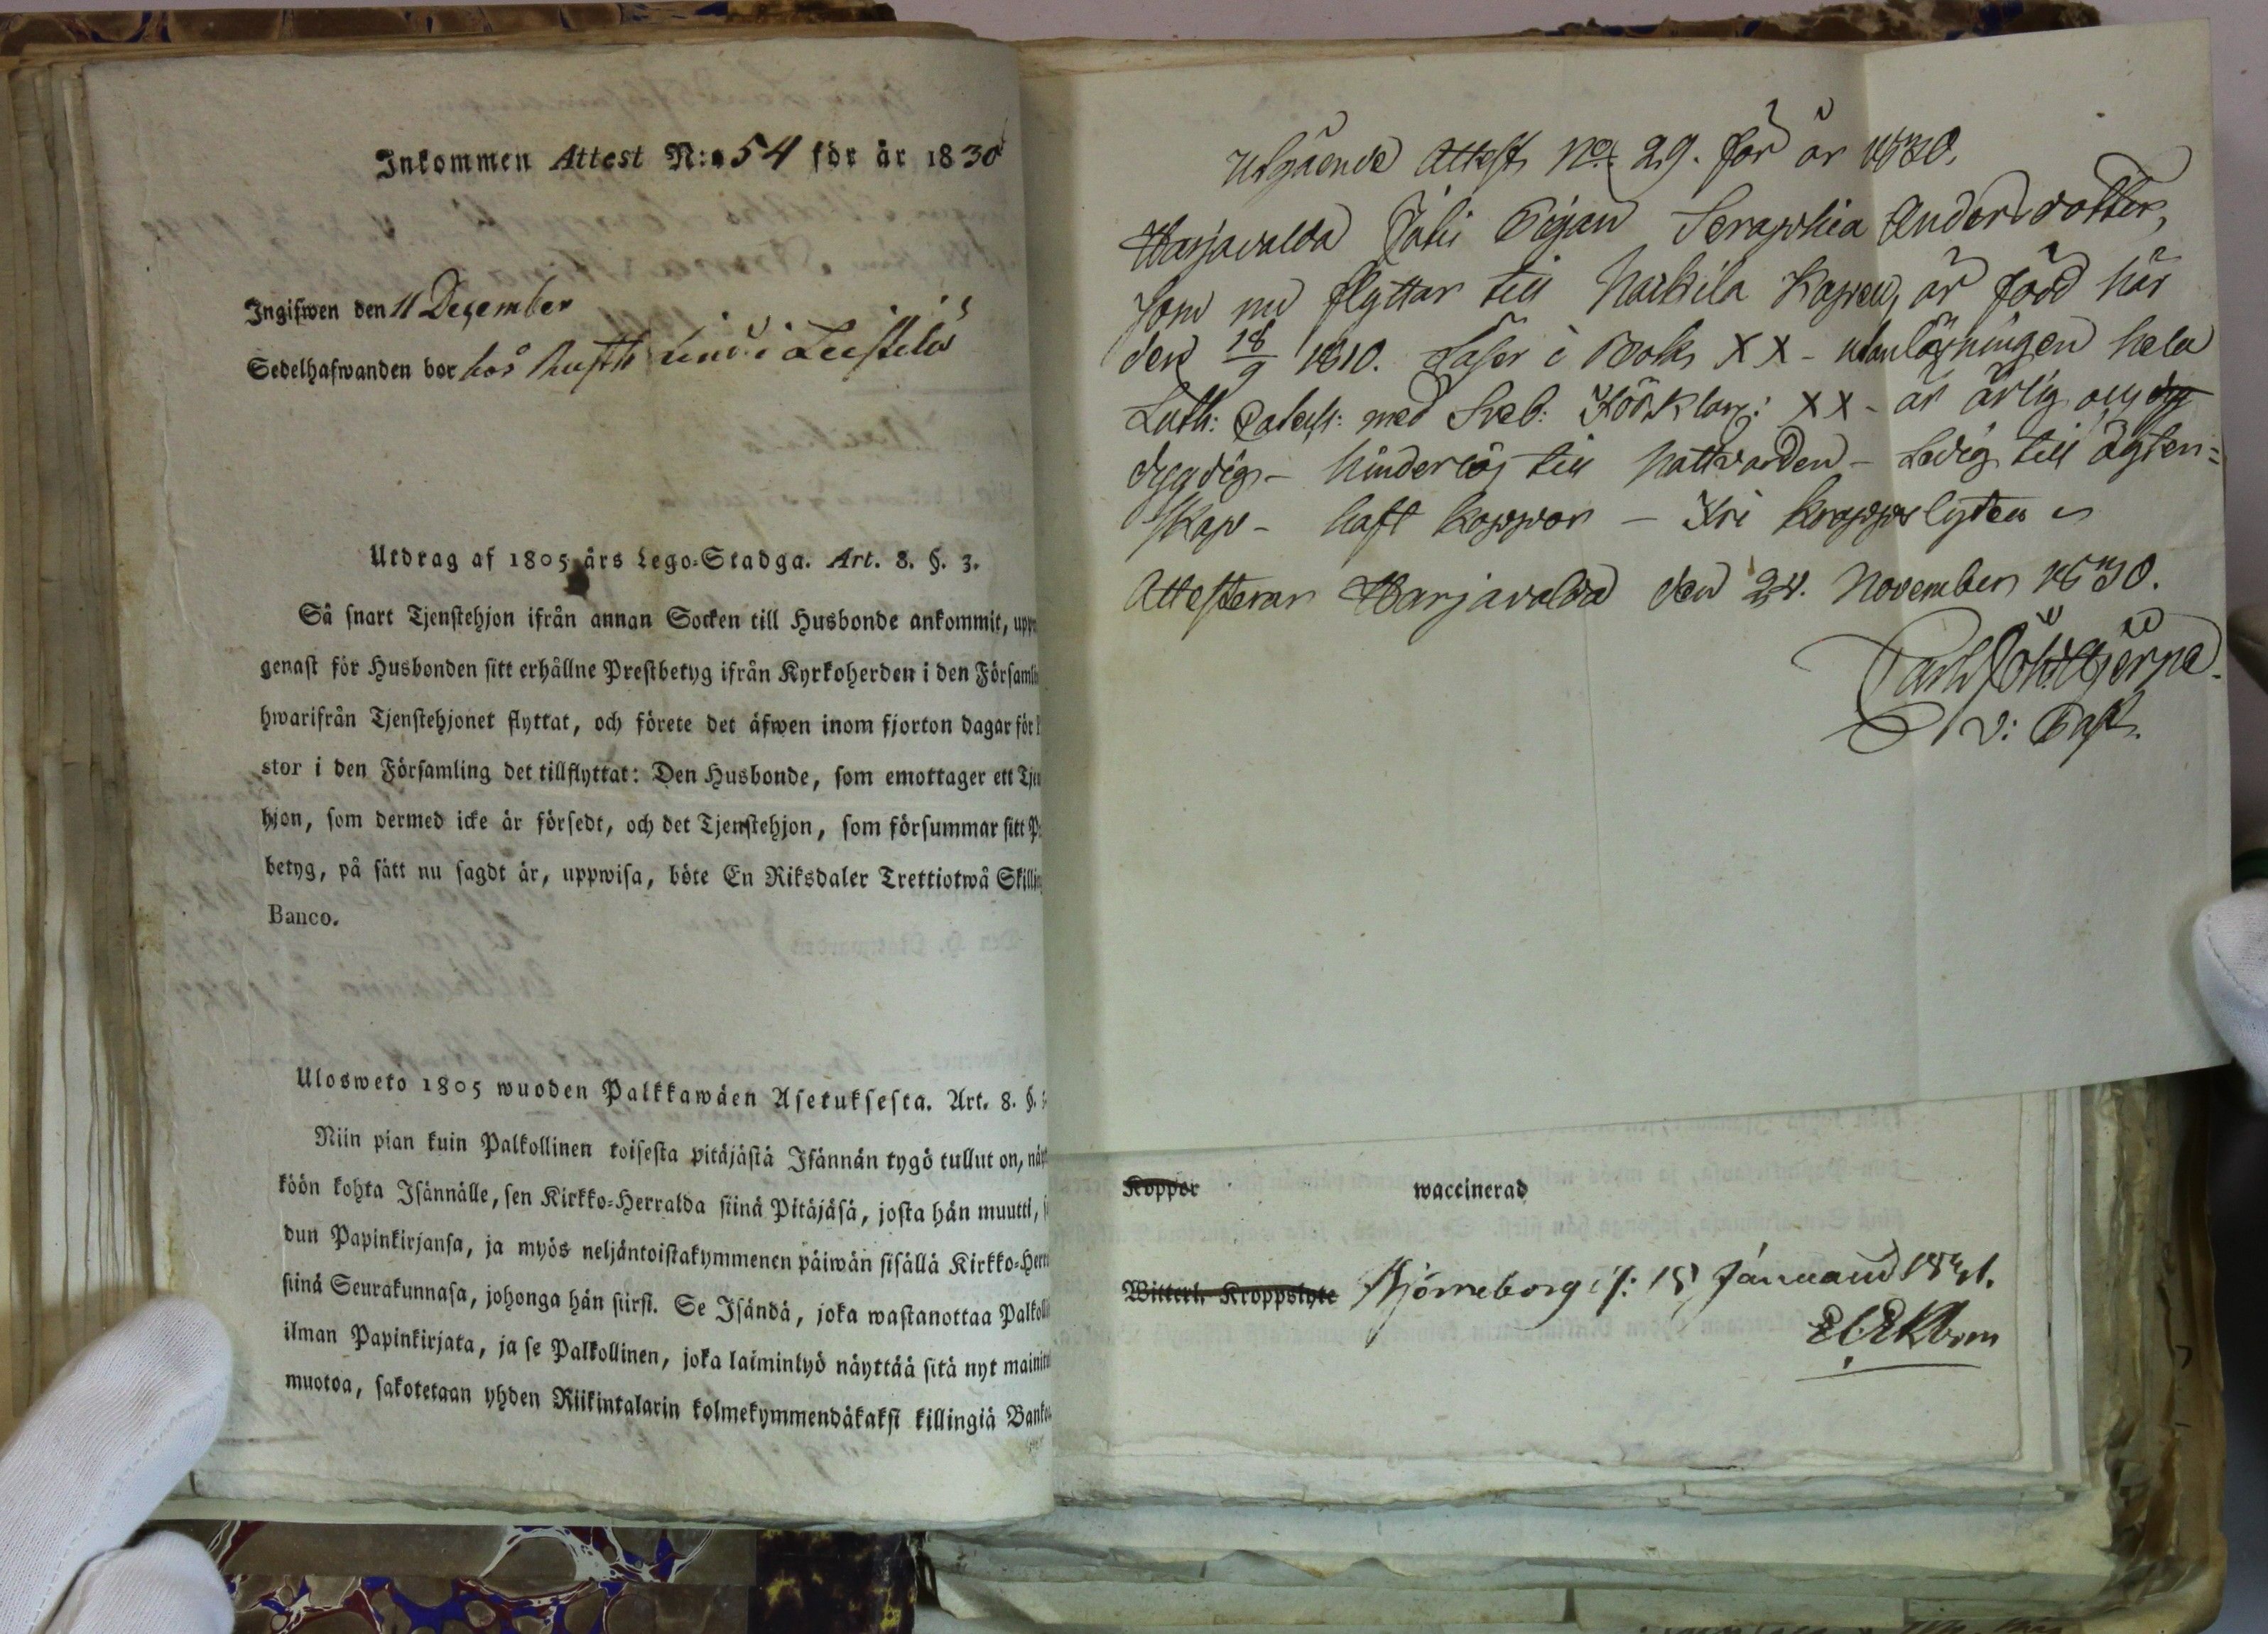 Inkommen Attest N:o 54 för år 1830
Ingifwen den 11 December
Sedelhafwanden bor hos Rusth. Lind i Leistilä
Utdrag af 1805 års Lego-Stadga. Art. 8. §. 3.
Så snart Tjenstehjon ifrån annan Socken till Husbonde ankommit, upp
genast för Husbonden sitt erhållne Prestbetyg ifrån Kyrkoherden i den Församli
hwarifrån Tjenstehjonet flyttat, och förete det äfwen inom fjorton dagar för
stor i den Församling det tillflyttat: Den Husbonde, som emottager ett Tjen
hjon, som dermed icke är försedt, och det Tjenstehjon, som försummar sitt P
betyg, på sätt nu sagdt är, uppwisa, böte En Riksdaler Trettiotwå Skillin
Banco.
Ulosweto 1805 wuoden Palkkawäen Asetuksesta. Art. 8. §.
Niin pian kuin Palkollinen toisesta pitäjästä Isännän tygö tullut on, näyt
köön kohta Isännälle, sen Kirkko-Herralda siinä Pitäjäsä, josta hän muutti, s
dun Papinkirjansa, ja myös neljäntoistakymmenen päiwän sisällä Kirkko-Herra
siinä Seurakunnasa, johonga hän siirsi. Se Isändä, joka wastanottaa Palkolli
ilman Papinkirjata, ja se Palkollinen, joka laiminlyö näyttää sitä nyt mainitu
muotoa, sakotetaan yhden Riikintalarin kolmekymmendäkaksi killingiä Banko
Utgående Attest No. 29. för år 1830.
Harjavalda Pigan Seraphia Andersdotter,
som nu flyttar till Harkila Kapell, är född här
den 18/9 1810. Läser i Bok XX - utanläsningen hela
Luth: Cateck: med Sveb: Förklar: XX - är ärlig och dy
dygdig - hinderlös till Nattvarden - Ledig till ägten=
skap - haft koppor - Fri kroppslyten
Attesterar Harjavalda den 24. November 1830.
Carl
v: Past.
Koppor vaccinerad
Witterl. Kroppslyte Björneborg d. 15 Januarii 1831.